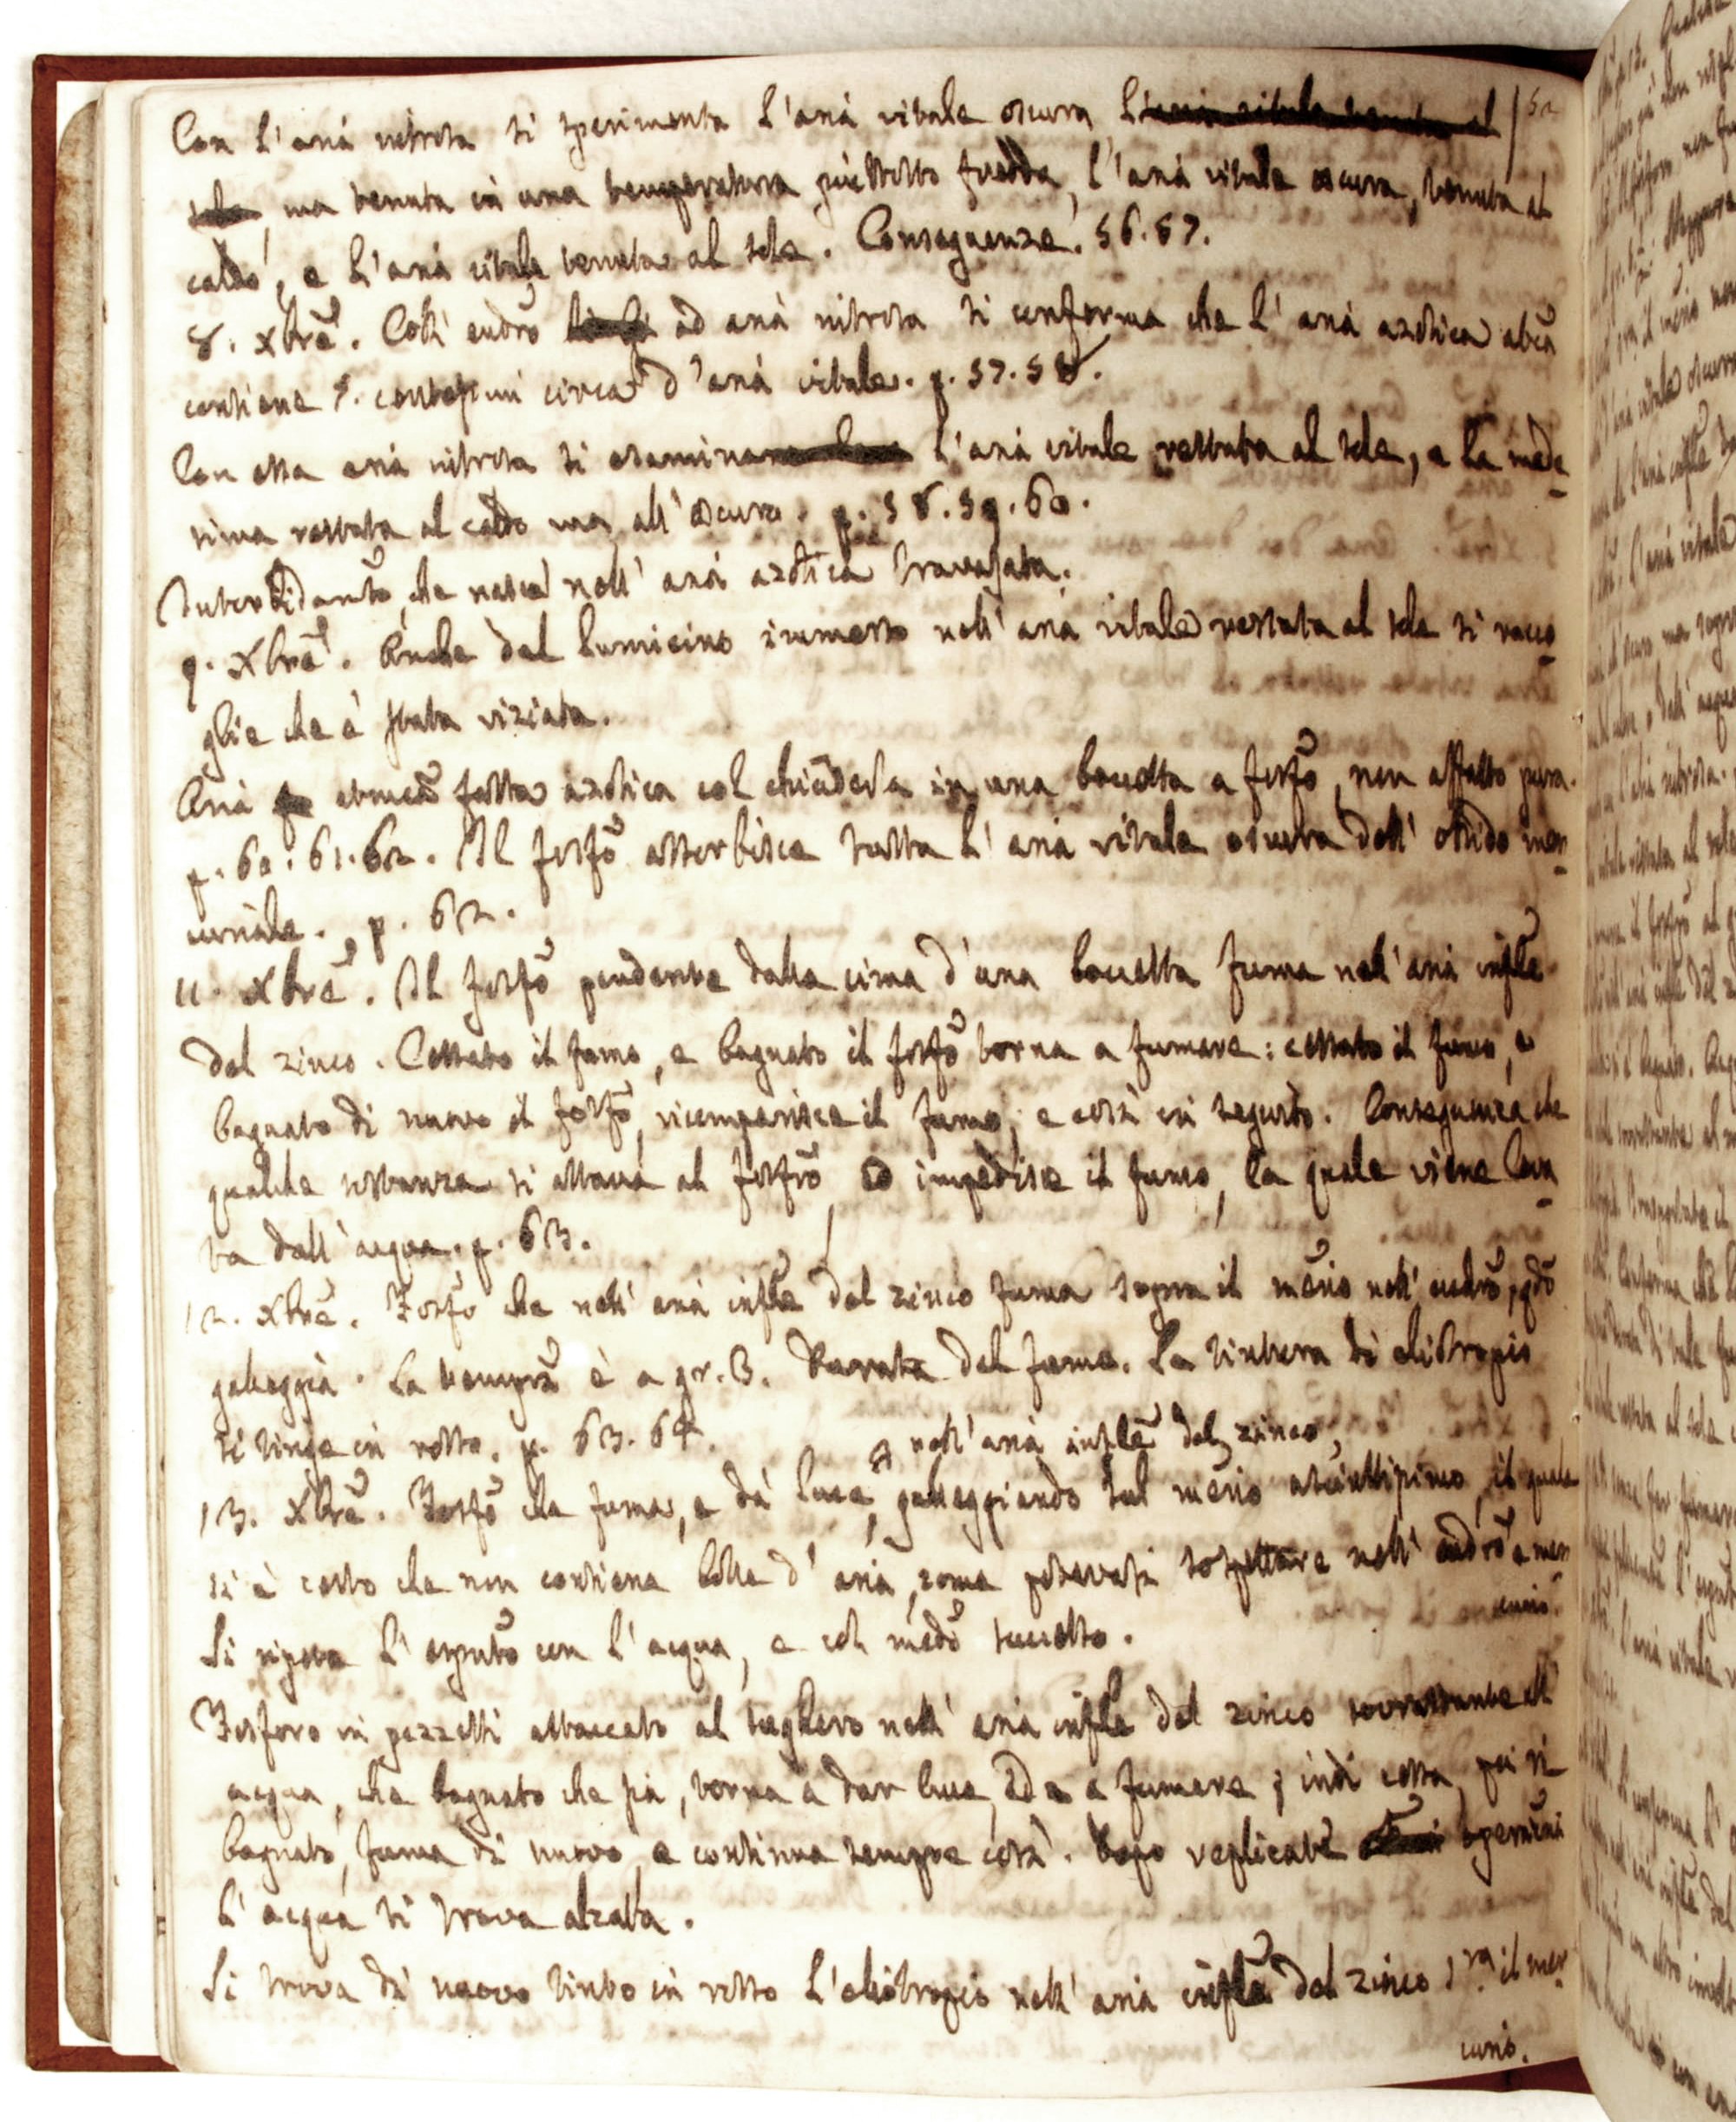 Con l'aria nitrosa si sperimenta l'aria vitale oscura l'aria vitale tenuta al
sole, ma tenuta in una temperatura piùttosto fredda, l'aria vitale oscura, tenuta al
caldo, e l'aria vitale tenuta al sole. Conseguenze. 56.57.
8. Xbre. Coll' eudro ad aria nitrosa si conferma che l'aria azotica
contiene centesimi circa d'aria vitale. p. 57.58.
Con essa aria nitrosa si esamina l'aria vitale restata al sole, e la mede
sima restata al caldo ma all'oscuro. p. 58.59.60.
che nasce nell'aria azotica travasata.
9. Xbre. Anche dal lumicino immerso nell'aria vitale restata al sole si racco
glie che è stata viziata.
Aria fatta azotica col chiudersi in una boccetta a fosfo, non affatto pura.
p. 60.61.62. Il fosfo assorbisce tutta l'aria vitale oscura dell'ossido mer
curiale. p. 62.
11. Xbre. Il fosfo pendente dalla cima d'una boccetta fuma nell'aria infle
del zinco. Cessato il fumo, e bagnato il fosfo torna a fumare: cessato il fumo, e
bagnato di nuovo il fosfo, ricomparisce il fumo; e così in seguito. Conseguenza che
qualche sostanza si attacca al fosfro ed impedisce il fumo, la quale viene leva
ta dall'acqua. p. 63.
12. Xbre. Fosfo che nell'aria infle del zinco fuma sopra il merio nell' eudro, qdo
galleggia. La tempra è a gr. 3. Durata del fumo. La tintura di elitropio
si tinge in rosso. p. 63.64.
nell'aria infle del zinco,
13. Xbre. Fosfo che fuma, e dà luce, galleggiando sul merio asciuttissimo, il quale
si è certo che non contiene bolle d'aria, come potevasi sospettare nell' eudro a mer
curio.
Si ripete l' con l'acqua, e col succetto.
Fosforo in pezzetti attaccato al sughero nell'aria infle del zinco sovrastante all'
acqua, che bagnato che sia, torna a dar luce, ed a fumare; indi cessa, poi ri
bagnato, fuma di nuovo, e continua sempre così. Dopo replicate
l'acqua si trova alzata.
Si trova di nuovo tinto in rosso l'eliotropio nell'aria infle del zinco il mer
curio.